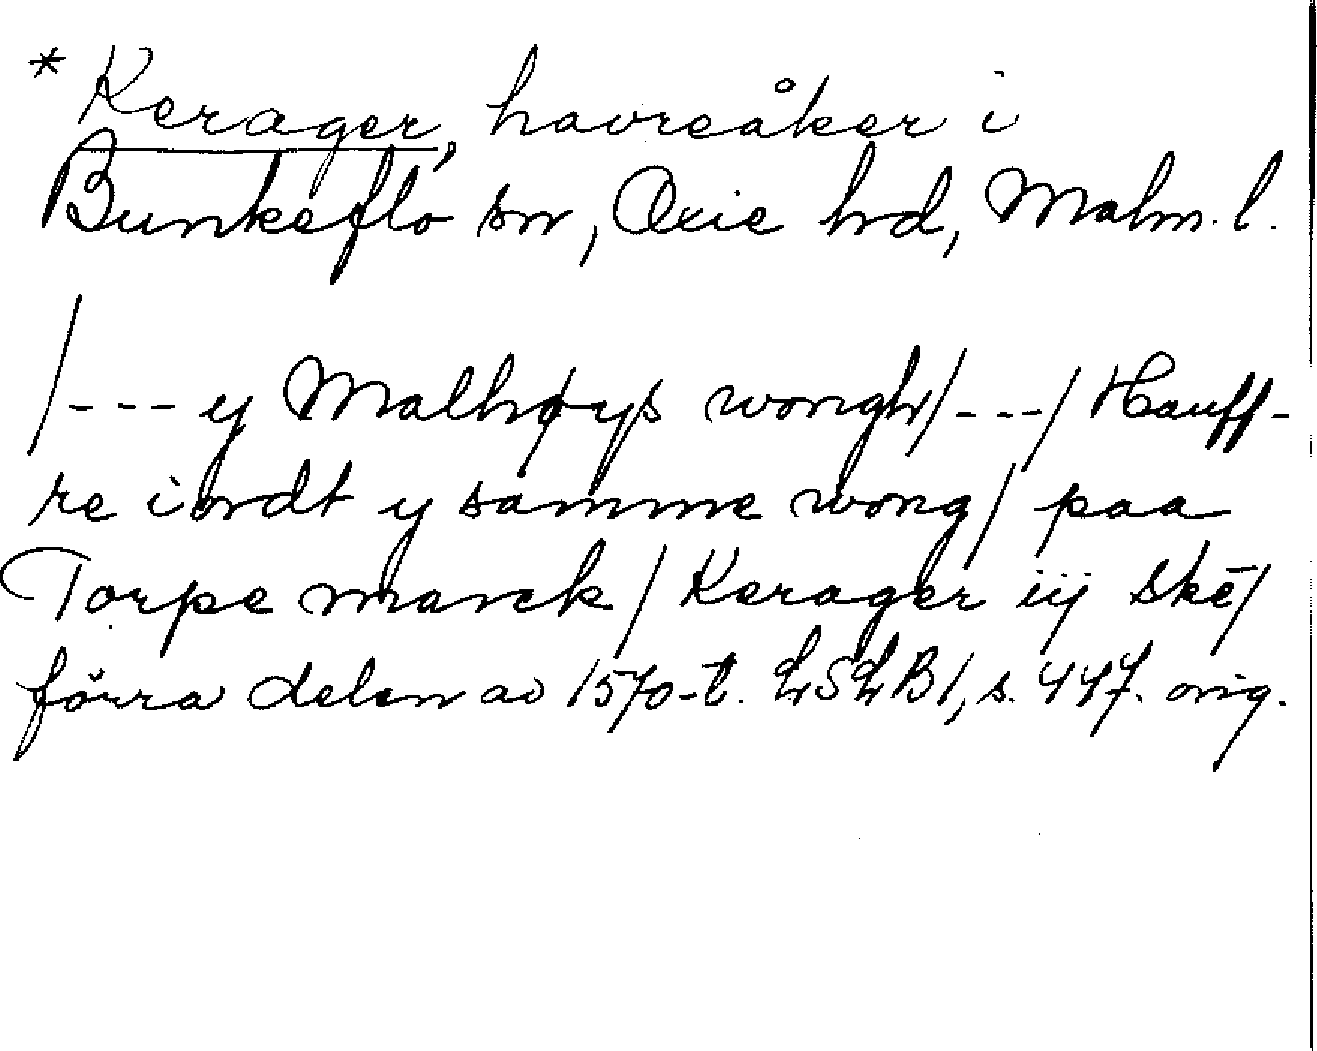 * Kerager, havreåker i
Bunkeflo sn, Oxie hd, Malm. l.
/--- y Malhøys wongh/---/ Hauff-
re iordt y samme wong/ paa
Torpe marck/ Kerager iij skē/
förra delen av 1570-t. LSLB1, s. 447. orig.